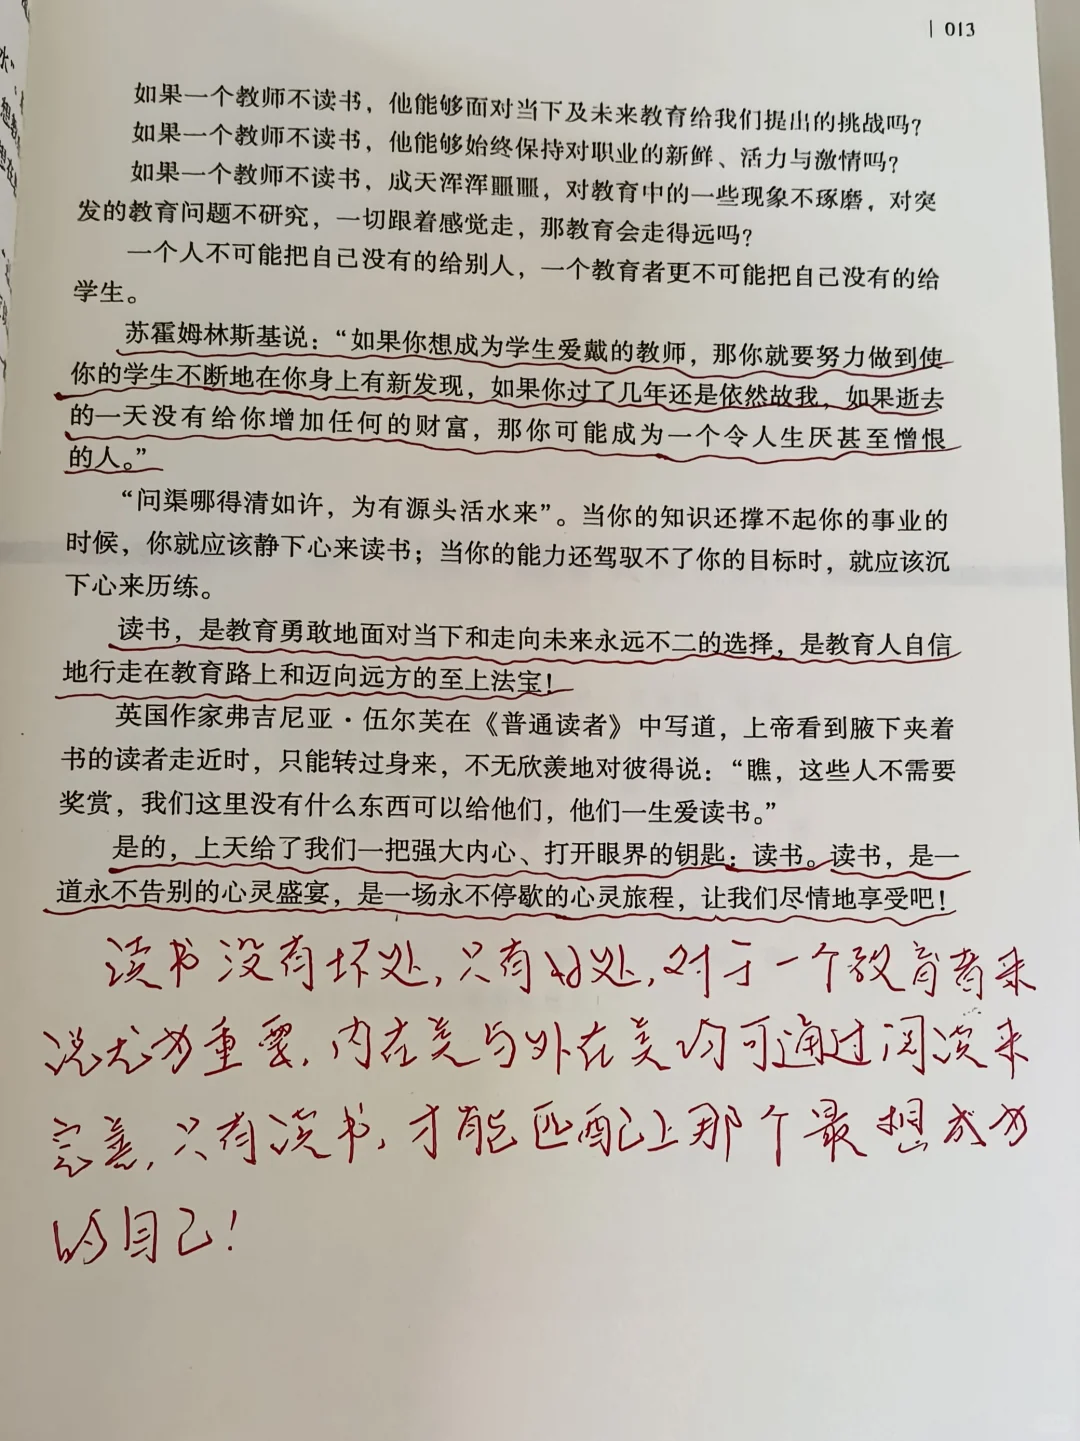 013
如果一个教师不读书，他能够面对当下及未来教育给我们提出的挑战吗？
如果一个教师不读书，他能够始终保持对职业的新鲜、活力与激情吗？
如果一个教师不读书，成天浑浑噩噩，对教育中的一些现象不琢磨，对突
发的教育问题不研究，一切跟着感觉走，那教育会走得远吗？
一个人不可能把自己没有的给别人，一个教育者更不可能把自己没有的给
学生。
苏霍姆林斯基说：“如果你想成为学生爱戴的教师，那你就要努力做到使
你的学生不断地在你身上有新发现，如果你过了几年还是依然故我，如果逝去
的一天没有给你增加任何的财富，那你可能成为一个令人生厌甚至憎恨
的人。”
“问渠哪得清如许，为有源头活水来”。当你的知识还撑不起你的事业的
时候，你就应该静下心来读书；当你的能力还驾驭不了你的目标时，就应该沉
下心来历练。
读书，是教育勇敢地面对当下和走向未来永远不二的选择，是教育人自信
地行走在教育路上和迈向远方的至上法宝！
英国作家弗吉尼亚·伍尔芙在《普通读者》中写道，上帝看到腋下夹着
书的读者走近时，只能转过身来，不无欣羡地对彼得说：“瞧，这些人不需要
奖赏，我们这里没有什么东西可以给他们，他们一生爱读书。”
是的，上天给了我们一把强大内心、打开眼界的钥匙：读书。读书，是一
道永不告别的心灵盛宴，是一场永不停歇的心灵旅程，让我们尽情地享受吧！
读书没有坏处，只有好处，对于一个教育者来
说尤为重要，内在美与外在美均可通过阅读来
完善，只有读书，才能匹配上那个最想成为
的自己！